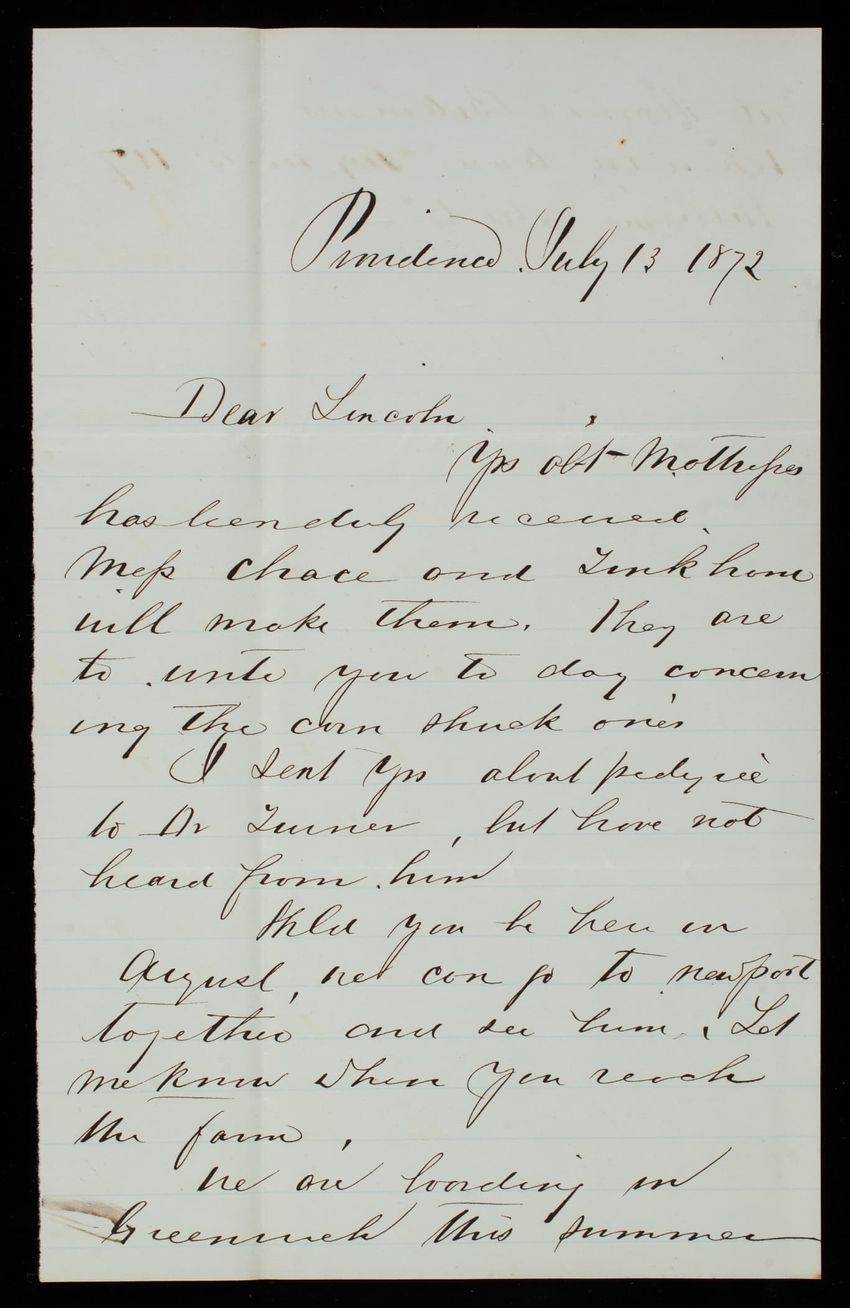 Providence July 13 1872
Dear Lincoln
Yrs abt Mattresses
has been duly received.
Mess Chace and Tinkham
will make them. They are
to write you to day concern
ing the corn shuck ones
I sent yrs about pedigree
to Dr Turner, but have not
heard from him
When you be here in
August, we can go to Newport
together and see him. Let
me know when you reach
the farm.
We are boarding in
Greenwich this summer